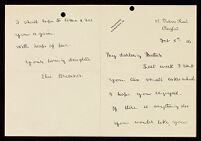 I shall hope to hear & see
you again
With heaps of love
Your loving daughter
Feb 5th
My darling Mother
Last week I sent
you two small cakes which
I hope you enjoyed.
If there is anything else
you would like you